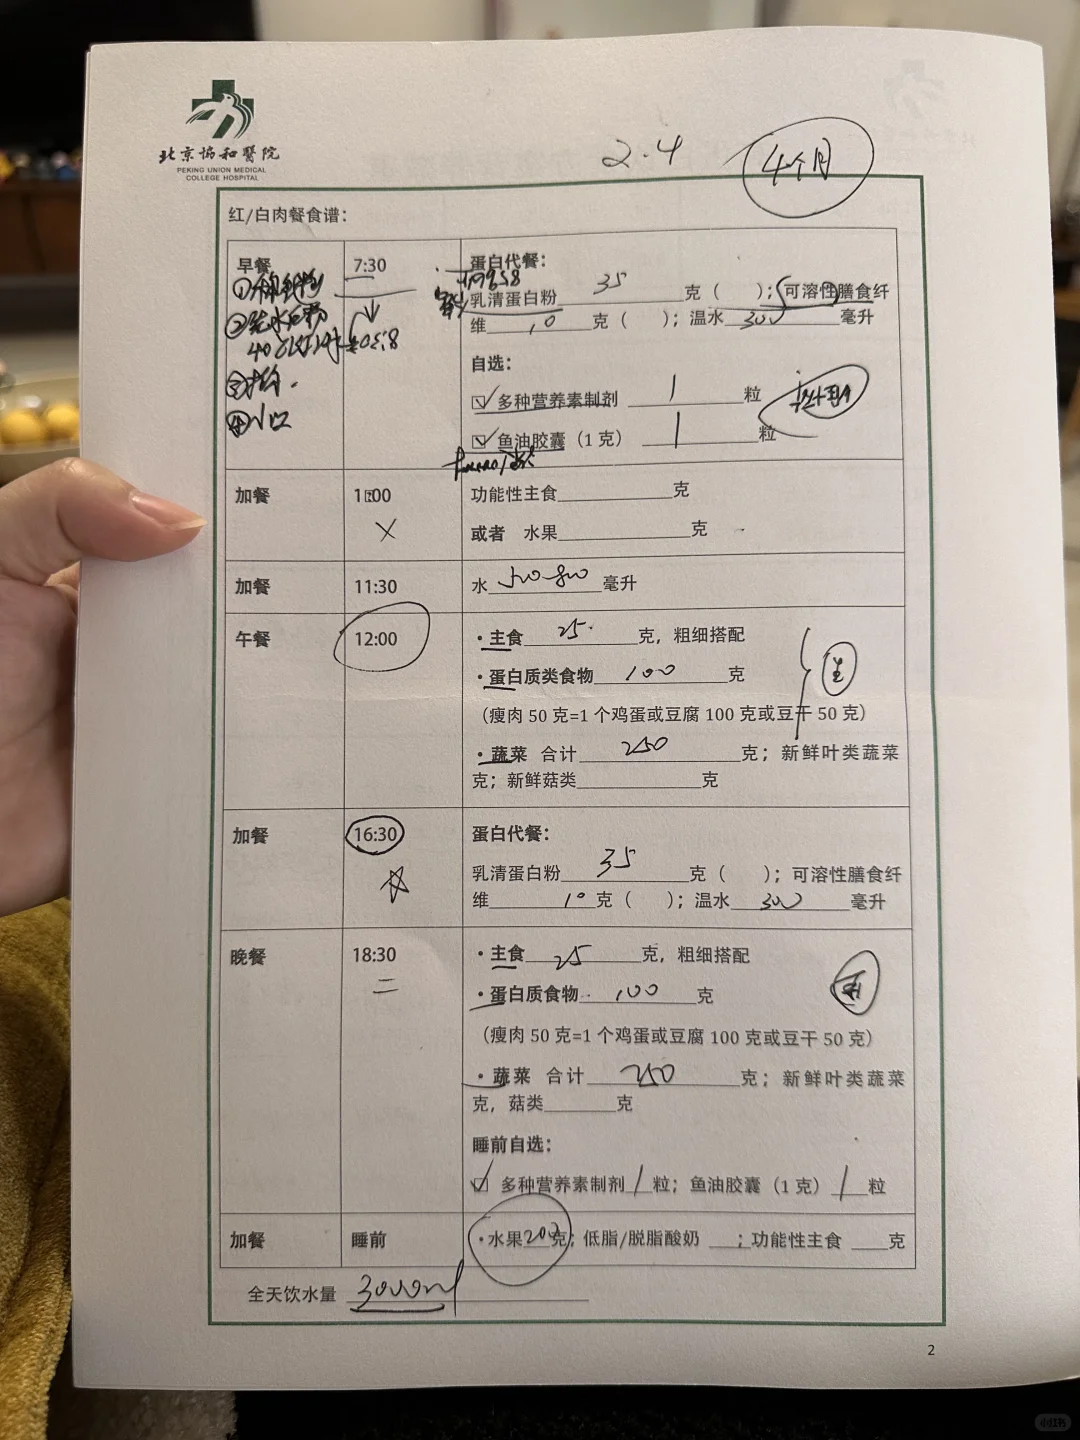 北京协和醫院
PEKING UNION MEDICAL
COLLEGE HOSPITAL
2.4
4个月
红/白肉餐食谱：
早餐
7:30
蛋白代餐：
乳清蛋白粉 35 克（ ）；可溶性膳食纤
维 10 克（ ）；温水 300 毫升
① ② 40℃以下
③ ④小口
自选：
☑ 多种营养素制剂 1 粒
☑ 鱼油胶囊（1 克） 1 粒
加餐
1 :00
×
功能性主食 克
或者 水果 克
加餐
11:30
水 500-800 毫升
午餐
12:00
·主食 25 克，粗细搭配
·蛋白质类食物 100 克
（瘦肉 50 克=1 个鸡蛋或豆腐 100 克或豆干 50 克）
生
·蔬菜 合计 250 克；新鲜叶类蔬菜
克；新鲜菇类 克
加餐
16:30
☆
蛋白代餐：
乳清蛋白粉 35 克（ ）；可溶性膳食纤
维 10 克（ ）；温水 300 毫升
晚餐
18:30
·主食 25 克，粗细搭配
·蛋白质食物 100 克
（瘦肉 50 克=1 个鸡蛋或豆腐 100 克或豆干 50 克）
·蔬菜 合计 250 克；新鲜叶类蔬菜
克，菇类 克
睡前自选：
☑ 多种营养素制剂 1 粒；鱼油胶囊（1 克） 1 粒
加餐
睡前
·水果 200 克；低脂/脱脂酸奶 ；功能性主食 克
全天饮水量 3000ml
2
小红书